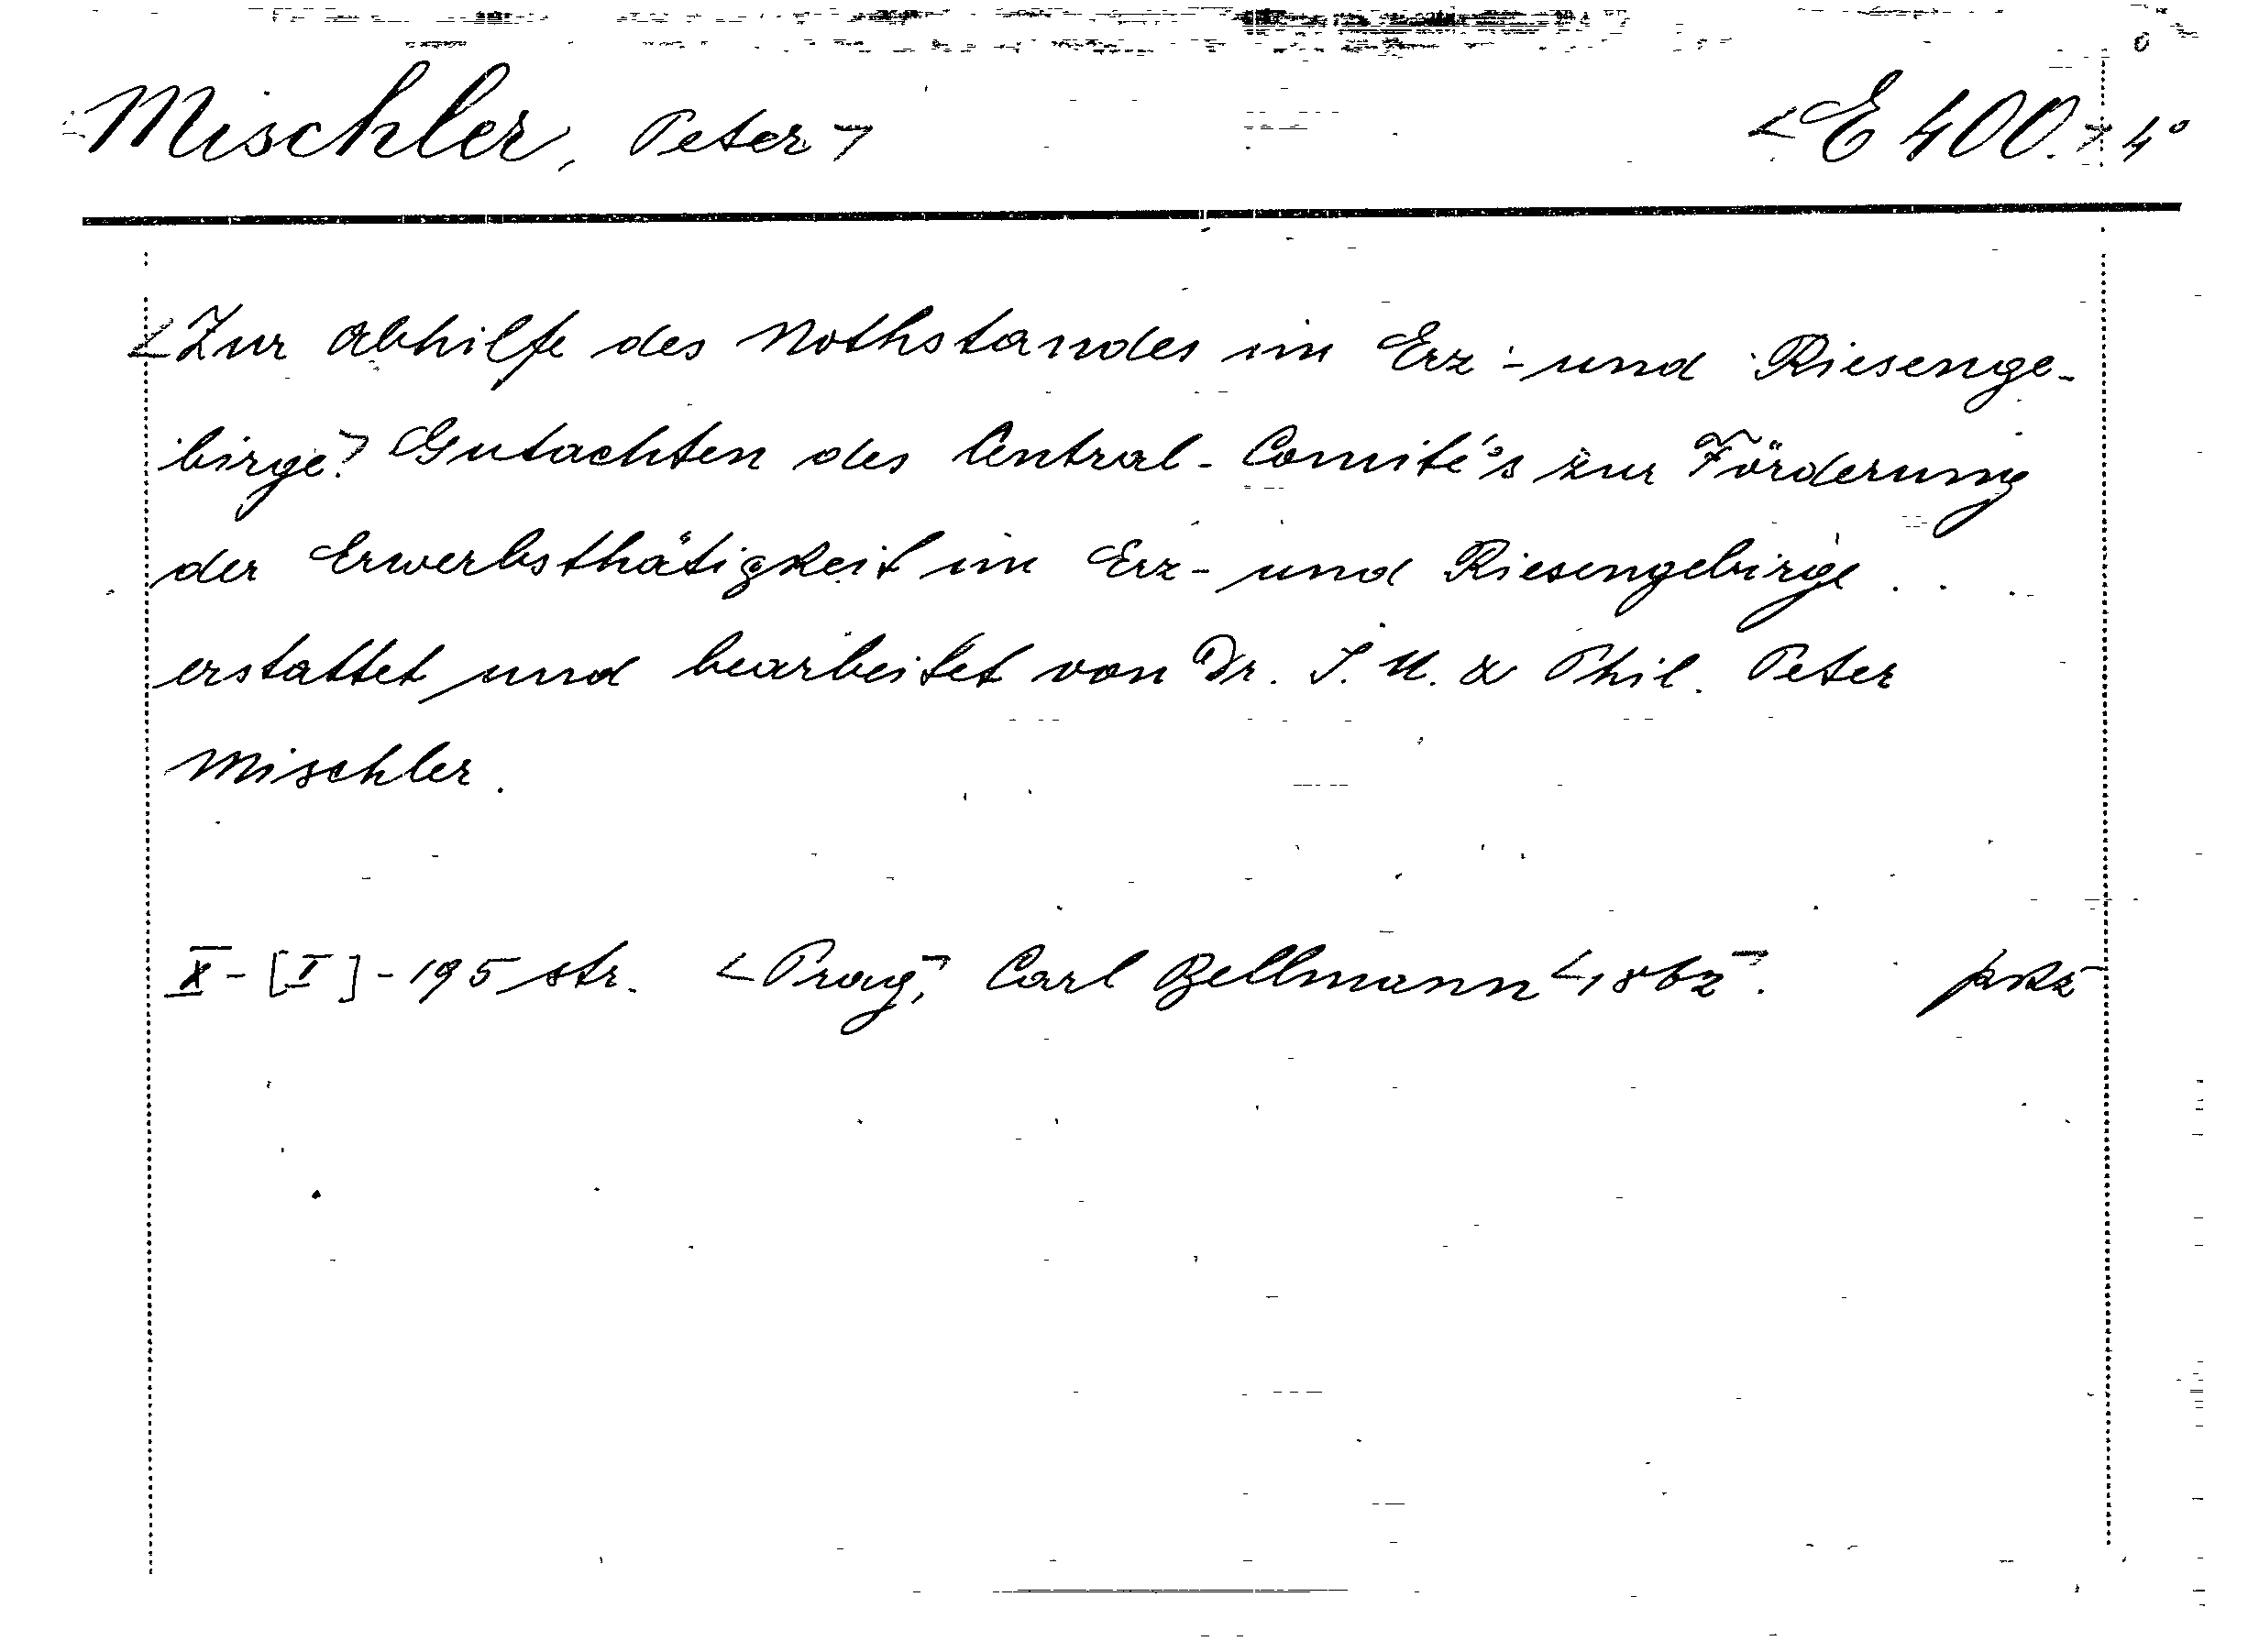 Mischler, Peter
E 400. 4°
Zur Abhilfe des Nothstandes im Erz- und Riesenge-
birge. Gutachten des Central-Comité's zur Förderung
der Erwerbsthätigkeit im Erz- und Riesengebirge . . .
erstattet und bearbeitet von Dr. I. U. & Phil. Peter
Mischler.
X-[I]-195 str. Prag, Carl Bellmann 1862.